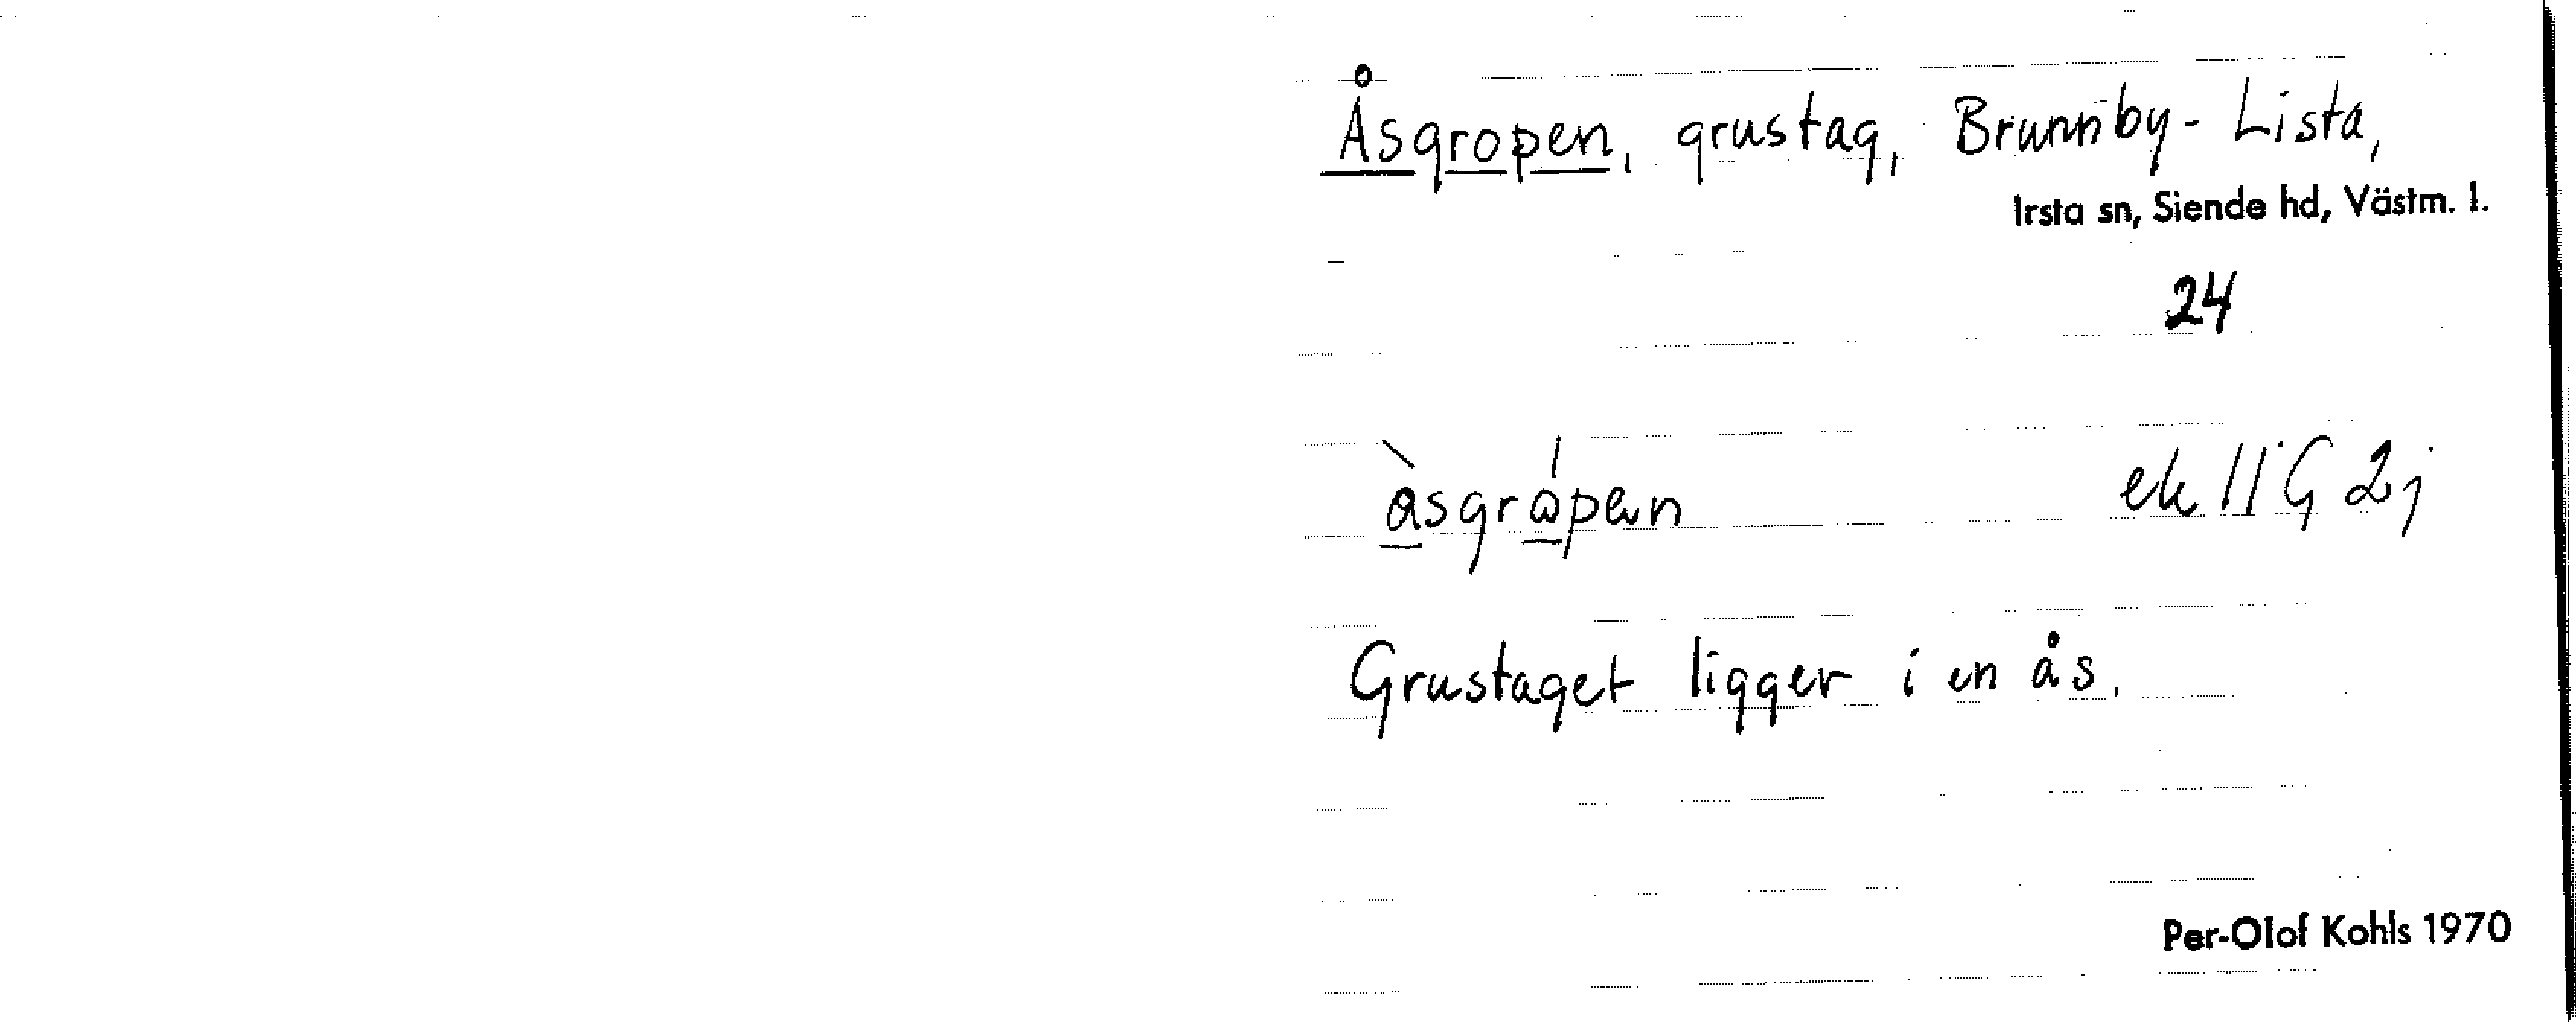 Åsgropen, grustag, Brunnby-Lista,
Irsta sn, Siende hd, Västm. l.
24
ek 11 G 2j
Grustaget ligger i en ås.
Per-Olof Kohls 1970